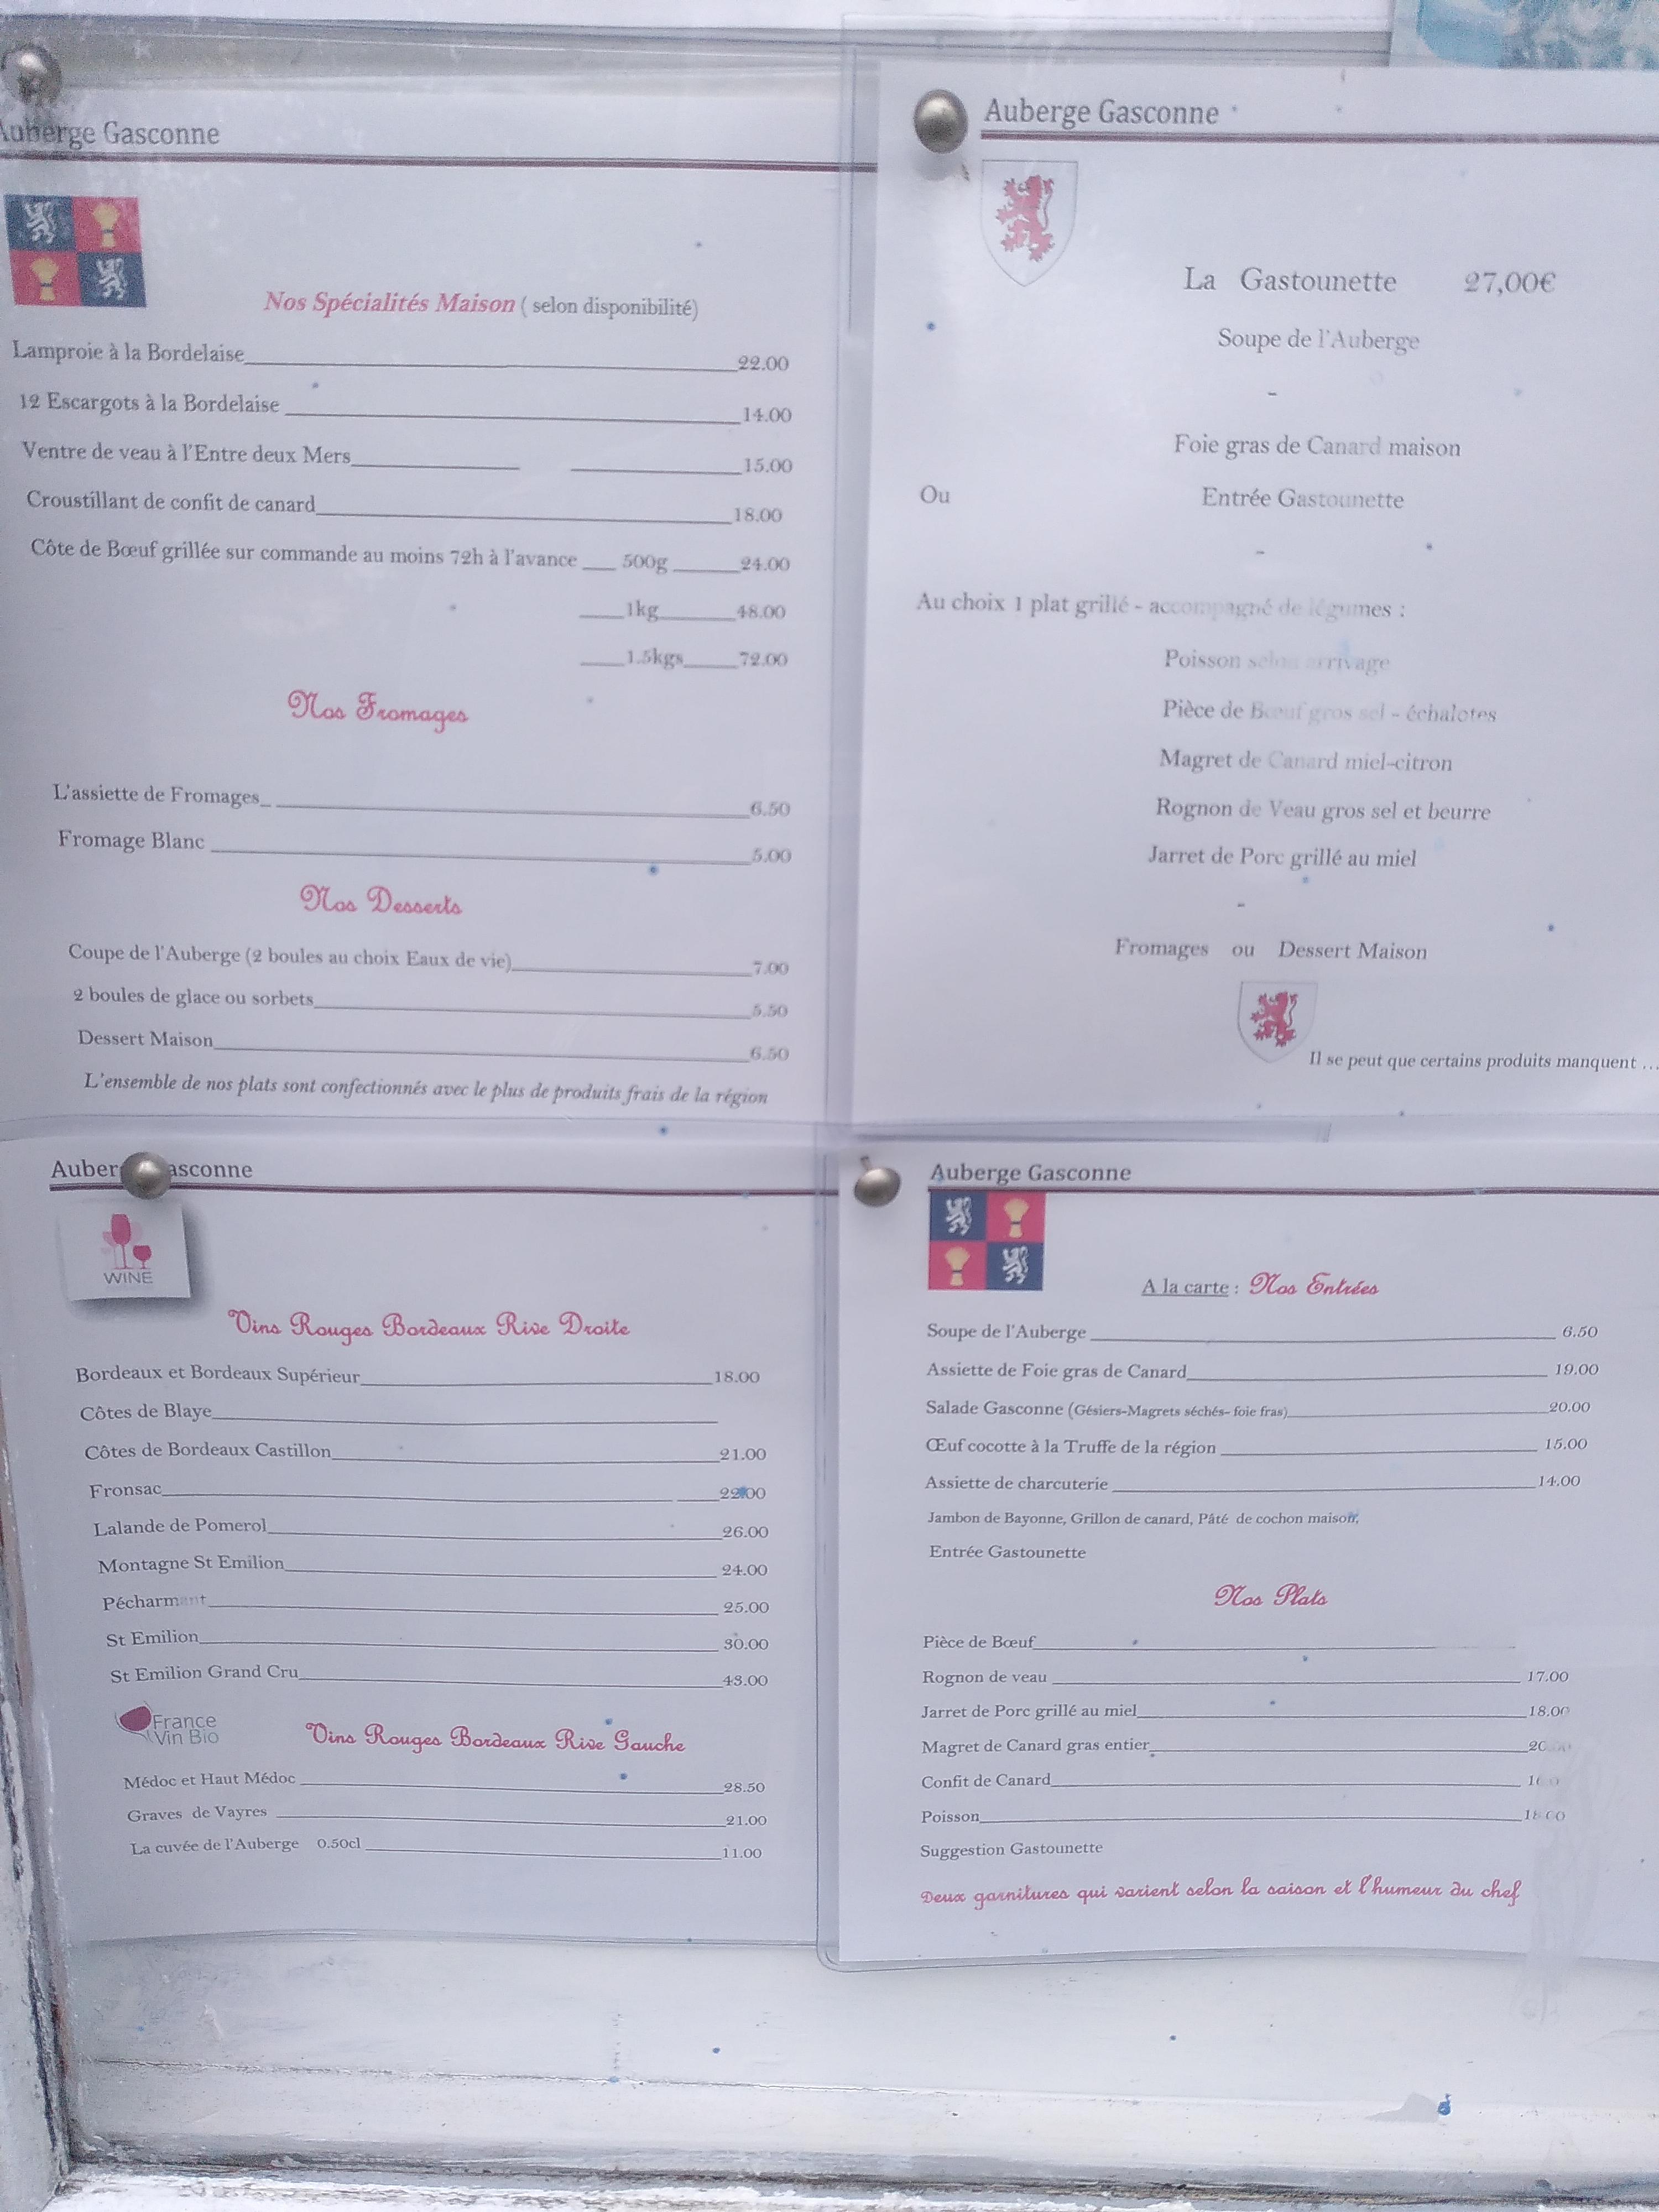 Auberge Gasconne
Nos Spécialités Maison ( selon disponibilité)
Lamproie à la Bordelaise 22.00
12 Escargots à la Bordelaise 14.00
Ventre de veau à l'Entre deux Mers 15.00
Croustillant de confit de canard 18.00
Côte de Bœuf grillée sur commande au moins 72h à l'avance 500g 24.00
1kg 48.00
1.5kgs 72.00
Nos Fromages
L'assiette de Fromages 6.50
Fromage Blanc 5.00
Nos Desserts
Coupe de l'Auberge (2 boules au choix Eaux de vie) 7.00
2 boules de glace ou sorbets 5.50
Dessert Maison 6.50
L'ensemble de nos plats sont confectionnés avec le plus de produits frais de la région
Auberge Gasconne
La Gastounette 27,00€
Soupe de l'Auberge
-
Foie gras de Canard maison
Ou Entrée Gastounette
-
Au choix 1 plat grillé - accompagné de légumes :
Poisson selon arrivage
Pièce de Bœuf gros sel - échalotes
Magret de Canard miel-citron
Rognon de Veau gros sel et beurre
Jarret de Porc grillé au miel
-
Fromages ou Dessert Maison
Il se peut que certains produits manquent ...
Auber asconne
WINE
Vins Rouges Bordeaux Rive Droite
Bordeaux et Bordeaux Supérieur 18.00
Côtes de Blaye
Côtes de Bordeaux Castillon 21.00
Fronsac 22.00
Lalande de Pomerol 26.00
Montagne St Emilion 24.00
Pécharmant 25.00
St Emilion 30.00
St Emilion Grand Cru 43.00
France
Vin Bio
Vins Rouges Bordeaux Rive Gauche
Médoc et Haut Médoc 28.50
Graves de Vayres 21.00
La cuvée de l'Auberge 0.50cl 11.00
Auberge Gasconne
A la carte : Nos Entrées
Soupe de l'Auberge 6.50
Assiette de Foie gras de Canard 19.00
Salade Gasconne (Gésiers-Magrets séchés- foie fras) 20.00
Œuf cocotte à la Truffe de la région 15.00
Assiette de charcuterie 14.00
Jambon de Bayonne, Grillon de canard, Pâté de cochon maison.
Entrée Gastounette
Nos Plats
Pièce de Bœuf
Rognon de veau 17.00
Jarret de Porc grillé au miel 18.00
Magret de Canard gras entier
Confit de Canard
Poisson 18.00
Suggestion Gastounette
Deux garnitures qui varient selon la saison et l'humeur du chef